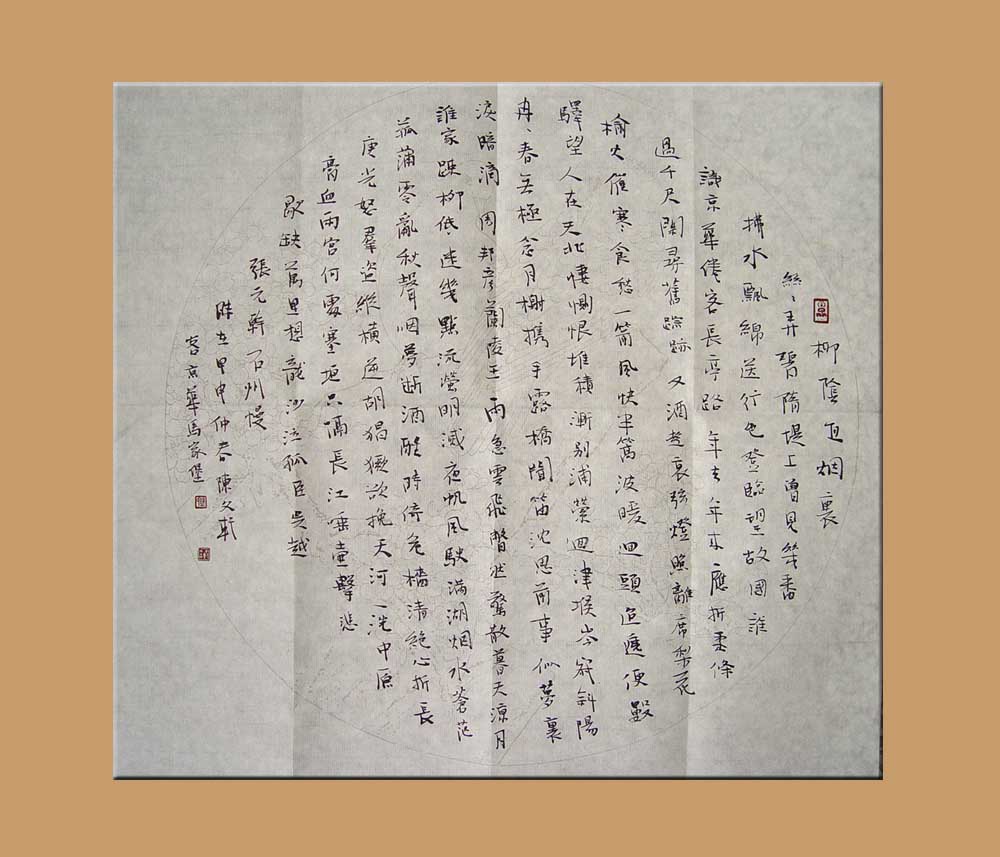 柳陰直烟裏
絲、弄碧隋堤上曾見幾番
拂水飄綿送行色登臨望故國誰
識京華倦客長亭路年去年來應折柔條
過千尺閑尋舊蹤跡又酒趁哀弦燈照離席梨花
榆火催寒食愁一箭風快半篙波暖迴頭迢遞便數
驛望人在天北悽惻恨堆積漸別浦縈迴津堠岑寂斜陽
冉、春無極念月榭携手露橋聞笛沈思前事似夢裏
淚暗滴 周邦彥蘭陵王 雨急雲飛瞥然驚散暮天涼月
誰家疎柳低迷幾點流螢明滅夜帆風駛滿湖烟水蒼茫
菰蒲零亂秋聲咽夢斷酒醒時倚危檣清絕心折長
庚光怒羣盜縱橫逆胡猖獗欲挽天河一洗中原
膏血兩宮何處塞垣只隔長江唾壺擊悲
歌缺萬里想龍沙泣孤臣吳越
張元幹石州慢
時在甲申仲春陳文
客京華馬家堡